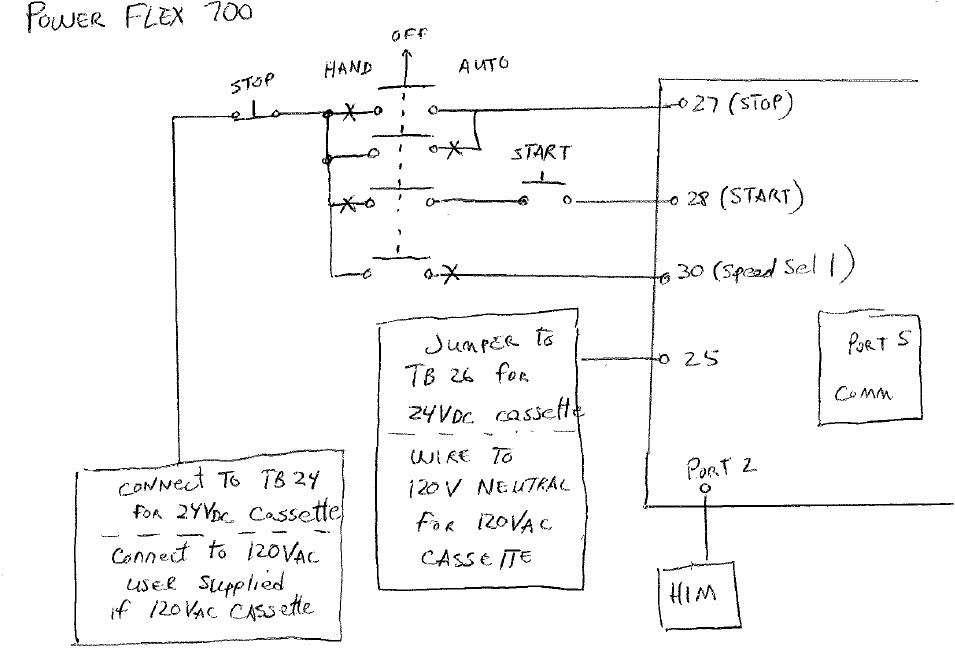 POWER FLEX 700
OFF
HAND
AUTO
STOP
27 (STOP)
START
28 (START)
30 (Speed Sel 1)
JUMPER to
TB 26 for
24VDC cassette
WIRE TO
120V NEUTRAL
FOR 120VAC
CASSETTE
25
PORT 5
Comm
CONNECT TO TB 24
for 24VDC Cassette
Connect to 120VAC
USER Supplied
if 120VAC Cassette
PORT 2
HIM